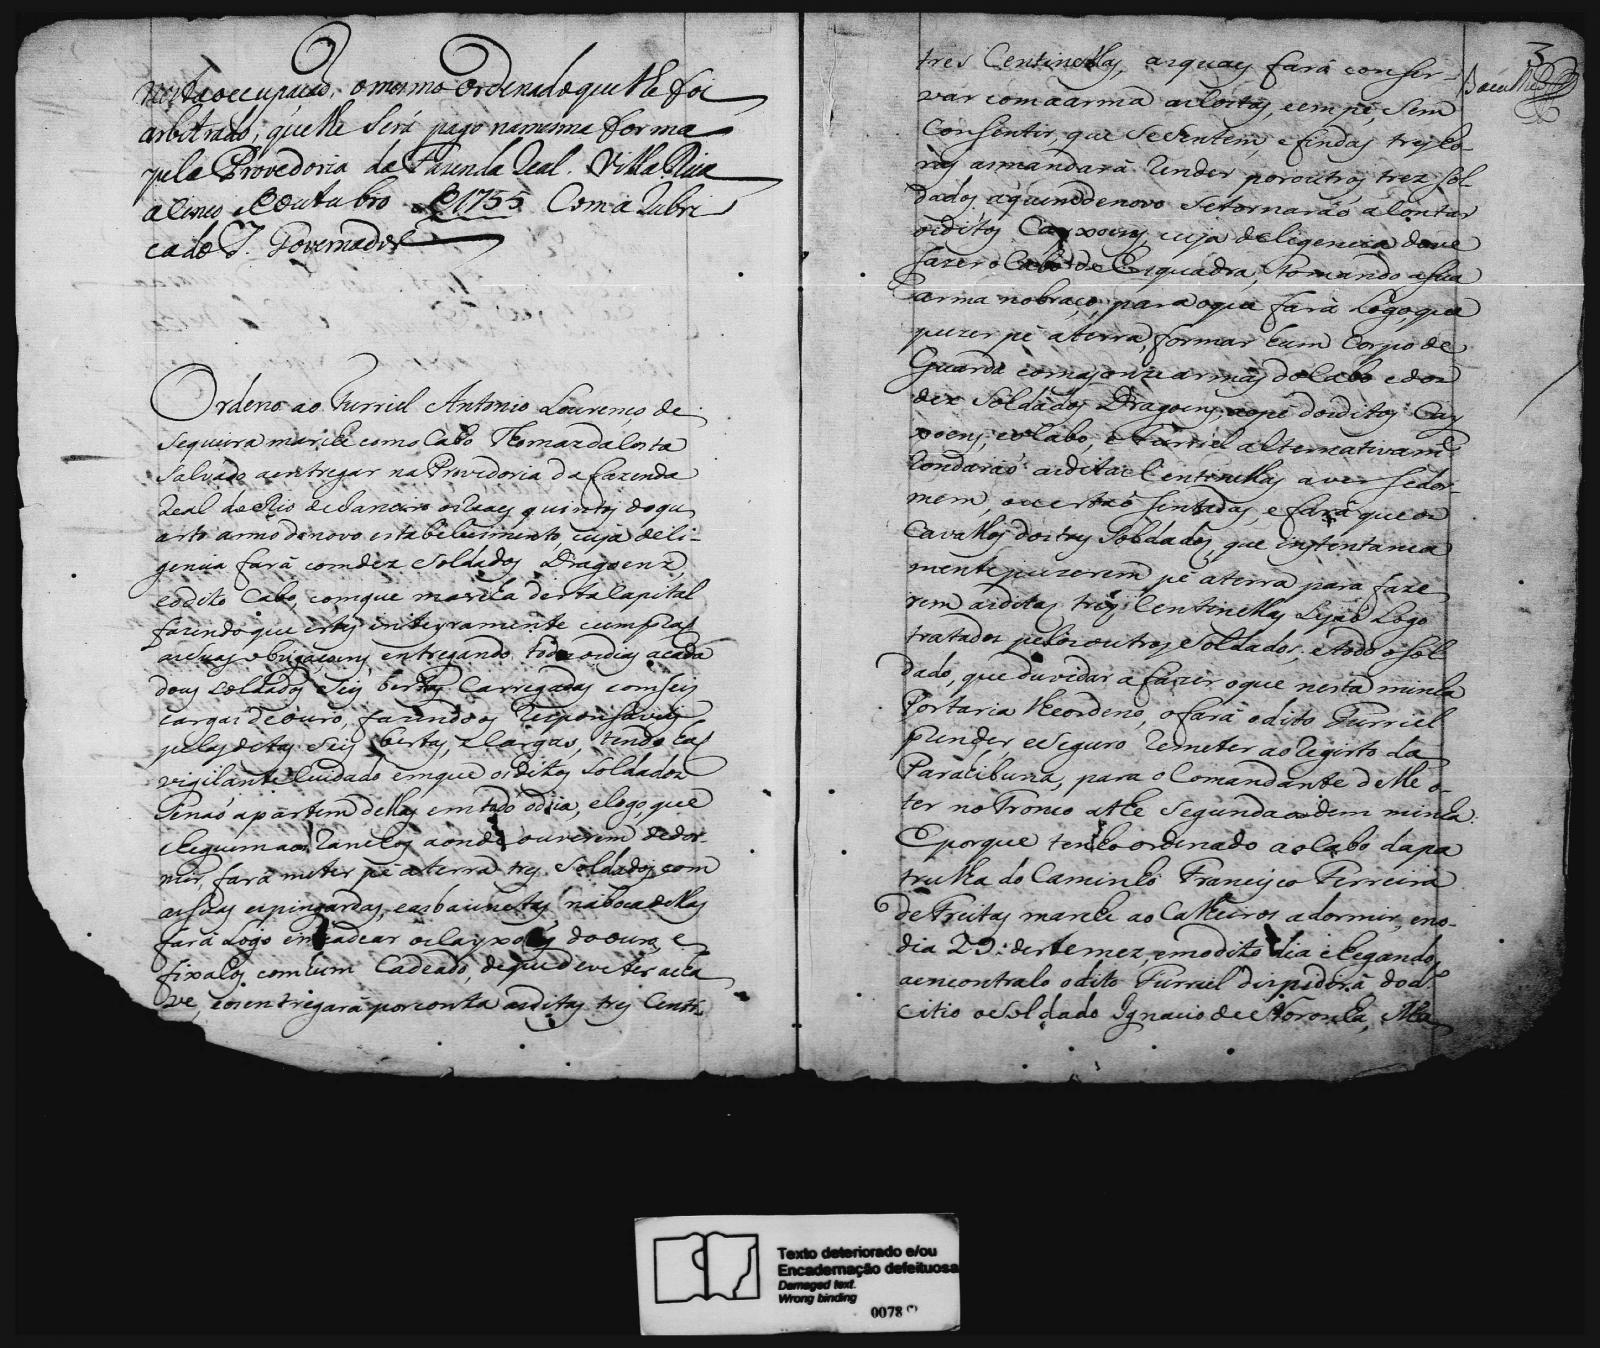 nesta occupação, o mesmo Ordenado que lhe foi
arbitrado, que lhe Será pago na mesma forma
pela Provedoria da Fazenda Real. Villa Rica
a Cinco de Outubro de 1755 Com a Rubri
ca do S. Governador
Ordeno ao Furriel Antonio Lourenço de
Sequeira marche como Cabo Thomaz da Costa
Salvado a entregar na Provedoria da fazenda
Real do Rio de Janeiro os Reaes quintos do qu
arto anno do novo estabelecimento, cuja deli-
gencia fará com dez Soldados Dragoens,
e o dito Cabo, com que marcha desta Capital
fazendo que estes inteyramente cumpraõ
as suas obrigaçoens, entregando todos os dias a cada
dous Soldados Seis bestas Carregadas com seis
cargas de ouro, fazendo os Responsaveis
pelas ditas Seis bestas, e Cargas, tendo
vigilante Cuidado em que os ditos Soldados
Senaõ apartem dellas em todo o dia, e logo, que
cheguem aos Ranchos aonde ouverem de dor-
mir, fará meter pé a terra tres Soldados com
as suas espingardas, e as baiunetas na boca dellas
fará Logo encadear os Cayxoens do ouro, e
fixalos com hum Cadeado, de que deve ter a cha
ve, e os entregará por conta as ditas tres Centi-
3
tres Centinellas, as quaes fará conser-
var com a arma as Costas, e em pé, Sem
Consentir, que Se Sentem, e findas tres ho-
ras as mandará Render por outros tres Sol-
dados a quem de novo Se tornaráõ a Contar
os ditos Cayxoens, cuja deligencia deve
fazer o Cabo de Esquadra, tomando a sua
arma no braço, para o que fará Logo, que
puzer pé a terra, formar hum Corpo de
Guarda com as onze armas do Cabo e dos
dez Soldados Dragoens, ao pé dos ditos Cay
xoens, e o Cabo, e Furriel alternativam.te
Rondaráõ as ditas Centinellas a ver Se dor-
mem, ou estaõ Sentadas, e fará que os
Cavallos dos tres Soldados, que instantania
mente puzerem pé a terra para faze
rem as ditas tres Centinellas Sejaõ Logo
tratados pelos outros Soldados, e todo o Sol
dado, que duvidar a fazer o que nesta minha
Portaria lhe ordeno, o fará o dito Furriel
prender, e Seguro Remeter ao Registo da
Paraibuna, para o Comandante delle o
ter no Tronco athe Segunda ordem minha.
E porque tenho ordenado ao Cabo da pa
trulha do Caminho Francisco Ferreira
de Freitas marche ao Calheiros a dormir, e no
dia 29. deste mez, e no dito dia e chegando
a encontralo o dito Furriel dispidirá do d.o
Citio o Soldado Ignacio de Noronha,
Texto deteriorado e/ou
Encadernação defeituosa
Damaged text.
Wrong binding
0078 (*)